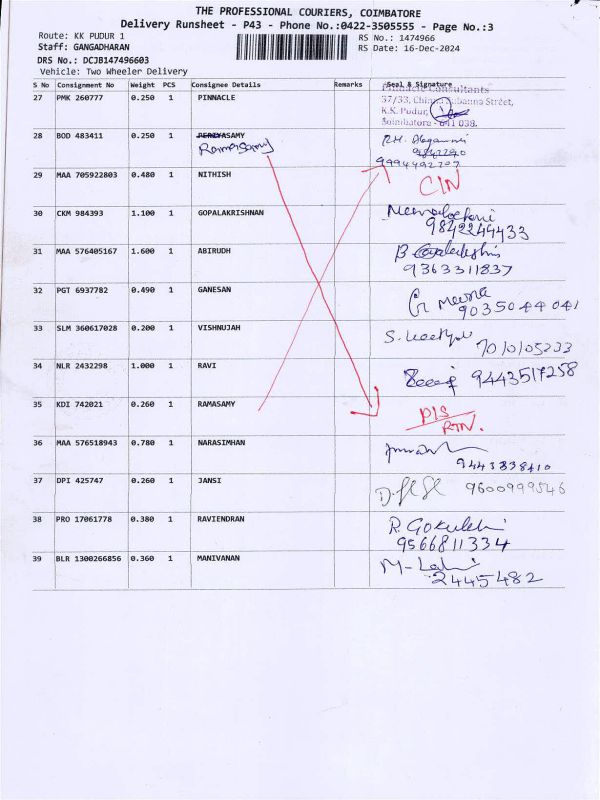 THE PROFESSIONAL COURIERS, COIMBATORE
Delivery Runsheet - P43 - Phone No.:0422-3505555 - Page No.:3
Route: KK PUDUR 1
RS No.: 1474966
Staff: GANGADHARAN
RS Date: 16-Dec-2024
DRS No.: DCJB147496603
Vehicle: Two Wheeler Delivery
S No Consignment No Weight PCS Consignee Details Remarks Seal & Signature
27 PMK 260777 0.250 1 PINNACLE
Pinnacle Consultants
37/33, Subanna Street,
K.K. Pudur,
Coimbatore - 641 038.
28 BOD 483411 0.250 1 SAMY
Ramasamy
R.H.
9994492707
29 MAA 705922803 0.480 1 NITHISH CIN
30 CKM 984393 1.100 1 GOPALAKRISHNAN
9842244433
31 MAA 576405167 1.600 1 ABIRUDH B
9363311837
32 PGT 6937782 0.490 1 GANESAN G Meena
9035044041
33 SLM 360617028 0.200 1 VISHNUJAH S.
7010105233
34 NLR 2432298 1.000 1 RAVI 9443517258
35 KDI 742021 0.260 1 RAMASAMY DIS
RTN.
36 MAA 576518943 0.780 1 NARASIMHAN
9443338410
37 DPI 425747 0.260 1 JANSI 9600999546
38 PRO 17061778 0.380 1 RAVIENDRAN R.
9566811334
39 BLR 1300266856 0.360 1 MANIVANAN M-
2445482